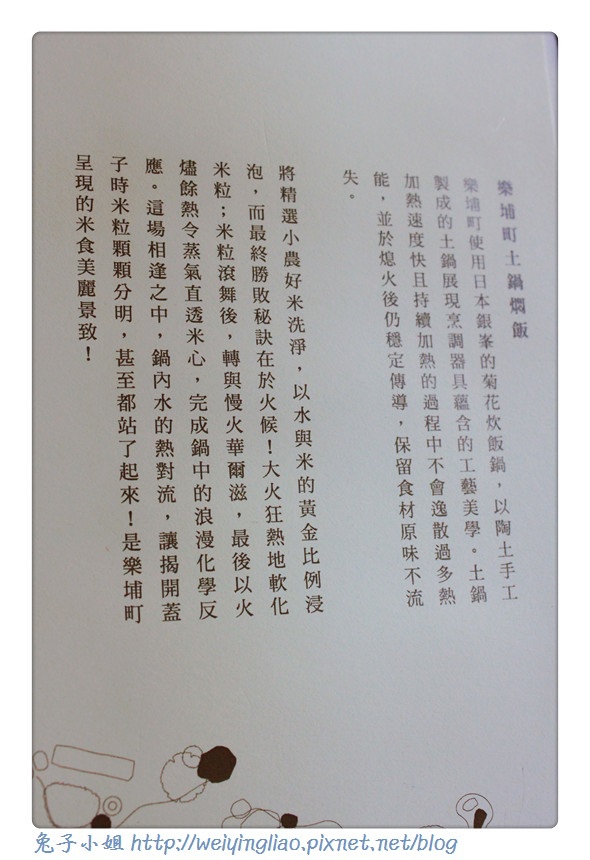 樂埔町土鍋燜飯
樂埔町使用日本銀峯的菊花炊飯鍋，以陶土手工
製成的土鍋展現烹調器具蘊含的工藝美學。土鍋
加熱速度快且持續加熱的過程中不會逸散過多熱
能，並於熄火後仍穩定傳導，保留食材原味不流
失。
將精選小農好米洗淨，以水與米的黃金比例浸
泡，而最終勝敗秘訣在於火候！大火狂熱地軟化
米粒；米粒滾舞後，轉與慢火華爾滋，最後以火
燼餘熱令蒸氣直透米心，完成鍋中的浪漫化學反
應。這場相逢之中，鍋內水的熱對流，讓揭開蓋
子時米粒顆顆分明，甚至都站了起來！是樂埔町
呈現的米食美麗景致！
兔子小姐 http://weiyingliao.pixnet.net/blog